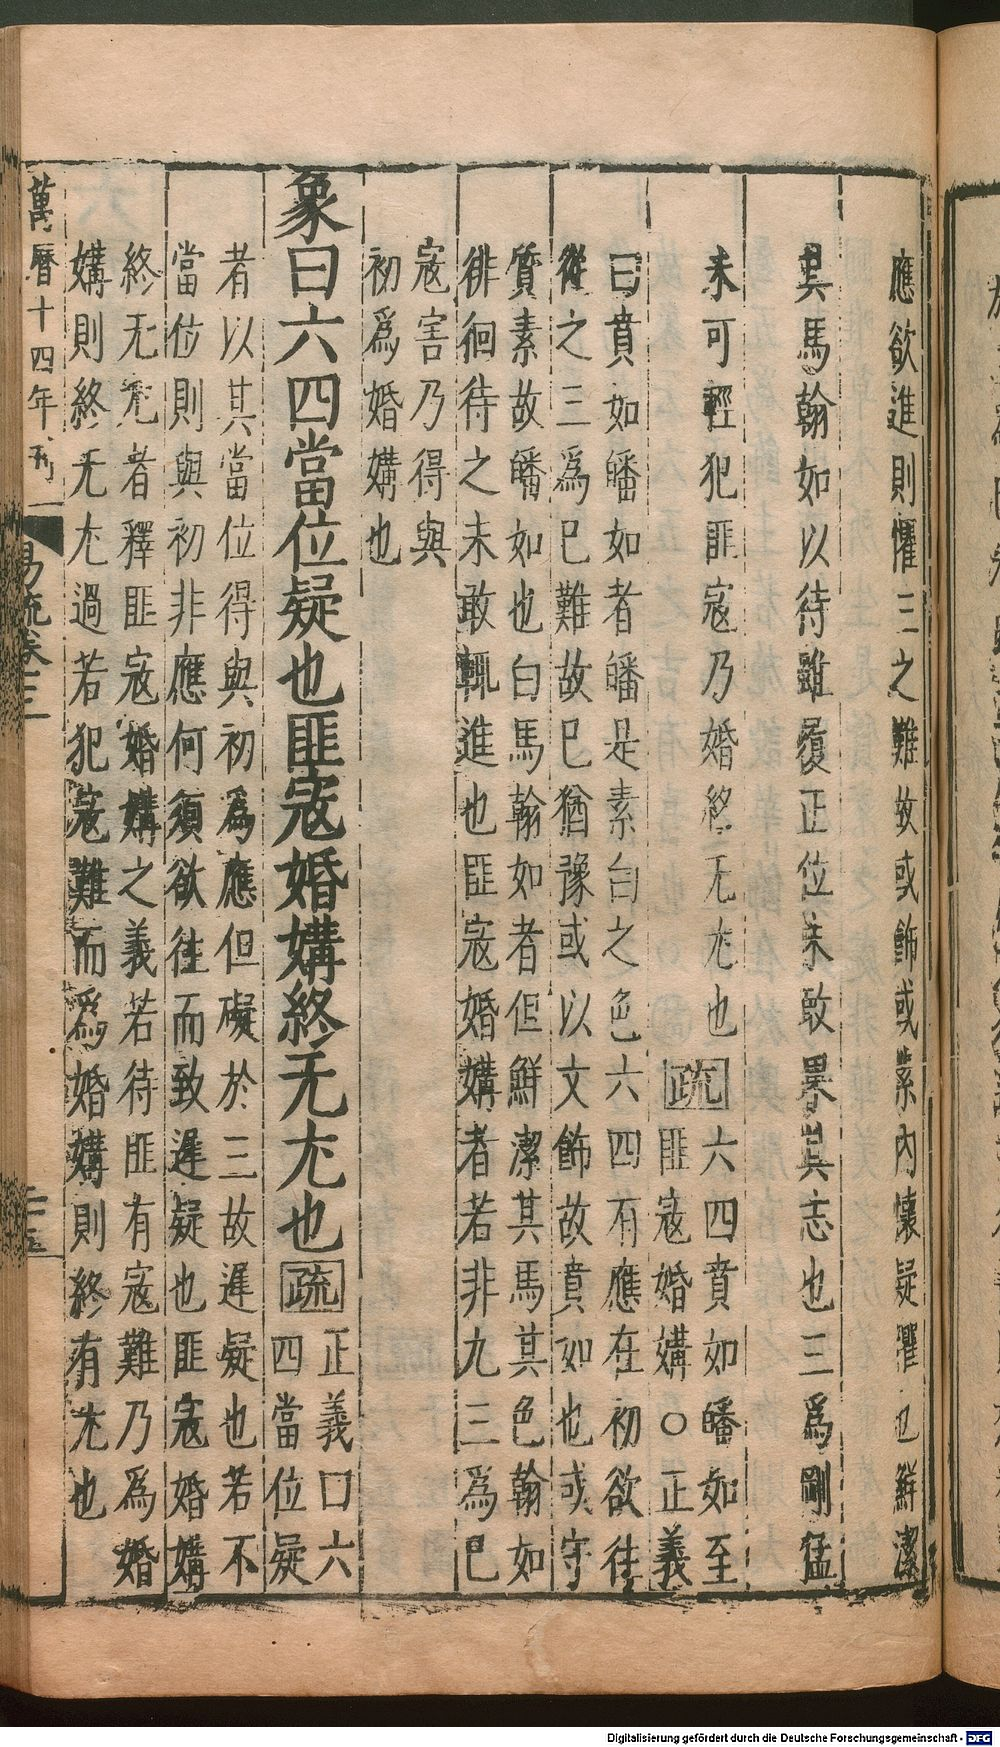 應欲進則懼三之難故或飾或素內懷疑懼也鮮潔
其馬翰如以待雖履正位未敢果其志也三爲剛猛
未可輕犯匪寇乃婚終无尤也疏六四賁如皤如至
匪寇婚媾○正義
曰賁如皤如者皤是素白之色六四有應在初欲往
從之三爲巳難故巳猶豫或以文飾故賁如也或守
質素故皤如也白馬翰如者但鮮潔其馬其色翰如
徘徊待之未敢輒進也匪寇婚媾者若非九三爲巳
寇害乃得與
初爲婚媾也
象曰六四當位疑也匪寇婚媾終无尤也疏正義曰六
四當位疑
者以其當位得與初爲應但礙於三故遲疑也若不
當位則與初非應何須欲往而致遲疑也匪寇婚媾
終无尤者釋匪寇婚媾之義若待匪有寇難乃爲婚
媾則終无尤過若犯寇難而爲婚媾則終有尤也
萬曆十四年刊
易疏卷三
二十五
Digitalisierung gefördert durch die Deutsche Forschungsgemeinschaft - DFG